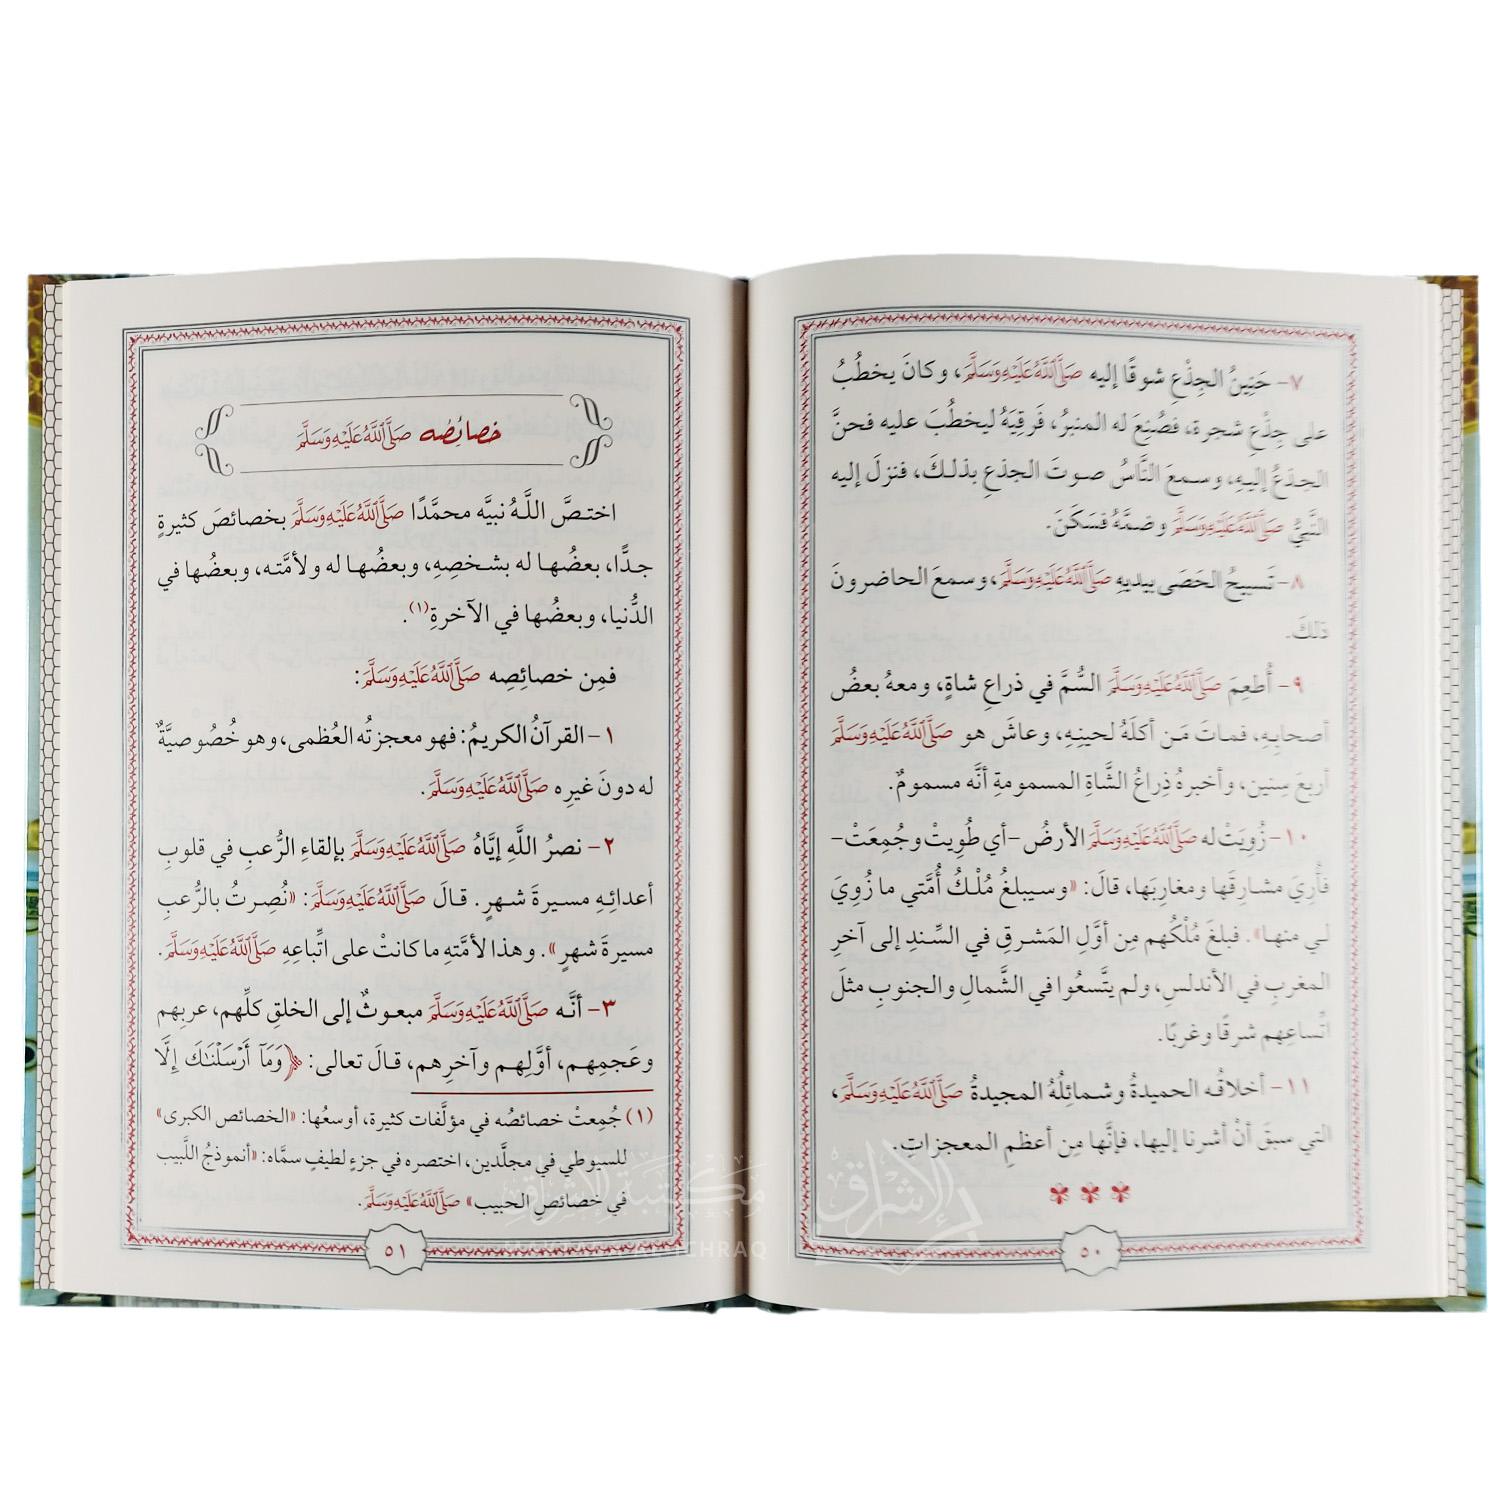 ٧- حَنِينُ الجِذْعِ شوقًا إليه صَلَّى اللَّهُ عَلَيْهِ وَسَلَّمَ، وكانَ يخطُبُ
على جِذْعِ شجرة، فصُنِعَ له المنبرُ، فَرَقِيَهُ ليخطُبَ عليه فحنَّ
الجذعُ إليهِ، وسمعَ النَّاسُ صوتَ الجذعِ بذلكَ، فنزلَ إليه
النَّبيُّ صَلَّى اللَّهُ عَلَيْهِ وَسَلَّمَ وضمَّهُ فسَكَنَ.
٨- تَسبيحُ الحَصَى بيديهِ صَلَّى اللَّهُ عَلَيْهِ وَسَلَّمَ، وسمعَ الحاضرونَ
ذلكَ.
٩- أُطعِمَ صَلَّى اللَّهُ عَلَيْهِ وَسَلَّمَ السُّمَّ في ذراعِ شاةٍ، ومعهُ بعضُ
أصحابِهِ، فماتَ مَن أكلَهُ لحينِهِ، وعاشَ هو صَلَّى اللَّهُ عَلَيْهِ وَسَلَّمَ
أربعَ سِنين، وأخبرهُ ذِراعُ الشَّاةِ المسمومةِ أنَّه مسمومٌ.
١٠- زُوِيَتْ له صَلَّى اللَّهُ عَلَيْهِ وَسَلَّمَ الأرضُ -أي طُوِيتْ وجُمِعَتْ-
فأُرِيَ مشارِقَها ومغارِبَها، قالَ: «وسيبلغُ مُلْكُ أُمَّتي ما زُوِيَ
لي منها». فبلغَ مُلْكُهم مِن أوَّلِ المَشرقِ في السِّندِ إلى آخرِ
المغربِ في الأندلسِ، ولم يتَّسعُوا في الشَّمالِ والجنوبِ مثلَ
اتِّساعِهم شرقًا وغربًا.
١١- أخلاقُه الحميدةُ وشمائلُهُ المجيدةُ صَلَّى اللَّهُ عَلَيْهِ وَسَلَّمَ،
التي سبقَ أنْ أشرنا إليها، فإنَّها مِن أعظمِ المعجزاتِ.
٥٠
خصائِصُه صَلَّى اللَّهُ عَلَيْهِ وَسَلَّمَ
اختصَّ اللَّهُ نبيَّه محمَّدًا صَلَّى اللَّهُ عَلَيْهِ وَسَلَّمَ بخصائصَ كثيرةٍ
جدًّا، بعضُها له بشخصِهِ، وبعضُها له ولأمَّته، وبعضُها في
الدُّنيا، وبعضُها في الآخرةِ(١).
فمِن خصائِصِه صَلَّى اللَّهُ عَلَيْهِ وَسَلَّمَ:
١- القرآنُ الكريمُ: فهو معجزتُه العُظمى، وهو خُصُوصيَّةٌ
له دونَ غيرِه صَلَّى اللَّهُ عَلَيْهِ وَسَلَّمَ.
٢- نصرُ اللَّهِ إيَّاهُ صَلَّى اللَّهُ عَلَيْهِ وَسَلَّمَ بإلقاءِ الرُّعبِ في قلوبِ
أعدائِهِ مسيرةَ شهرٍ. قالَ صَلَّى اللَّهُ عَلَيْهِ وَسَلَّمَ: «نُصِرتُ بالرُّعبِ
مسيرةَ شهرٍ». وهذا لأمَّتهِ ما كانتْ على اتِّباعِهِ صَلَّى اللَّهُ عَلَيْهِ وَسَلَّمَ.
٣- أنَّه صَلَّى اللَّهُ عَلَيْهِ وَسَلَّمَ مبعوثٌ إلى الخلقِ كلِّهم، عربِهم
وعَجمِهم، أوَّلِهم وآخرِهم، قالَ تعالى: ﴿وَمَآ أَرْسَلْنَٰكَ إِلَّا
(١) جُمِعتْ خصائصُه في مؤلَّفات كثيرة، أوسعُها: «الخصائص الكبرى»
للسيوطي في مجلَّدين، اختصره في جزءٍ لطيفٍ سمَّاه: «أنموذجُ اللَّبيب
في خصائصِ الحبيب» صَلَّى اللَّهُ عَلَيْهِ وَسَلَّمَ.
٥١
الإشراق
مكتبة الإشراق